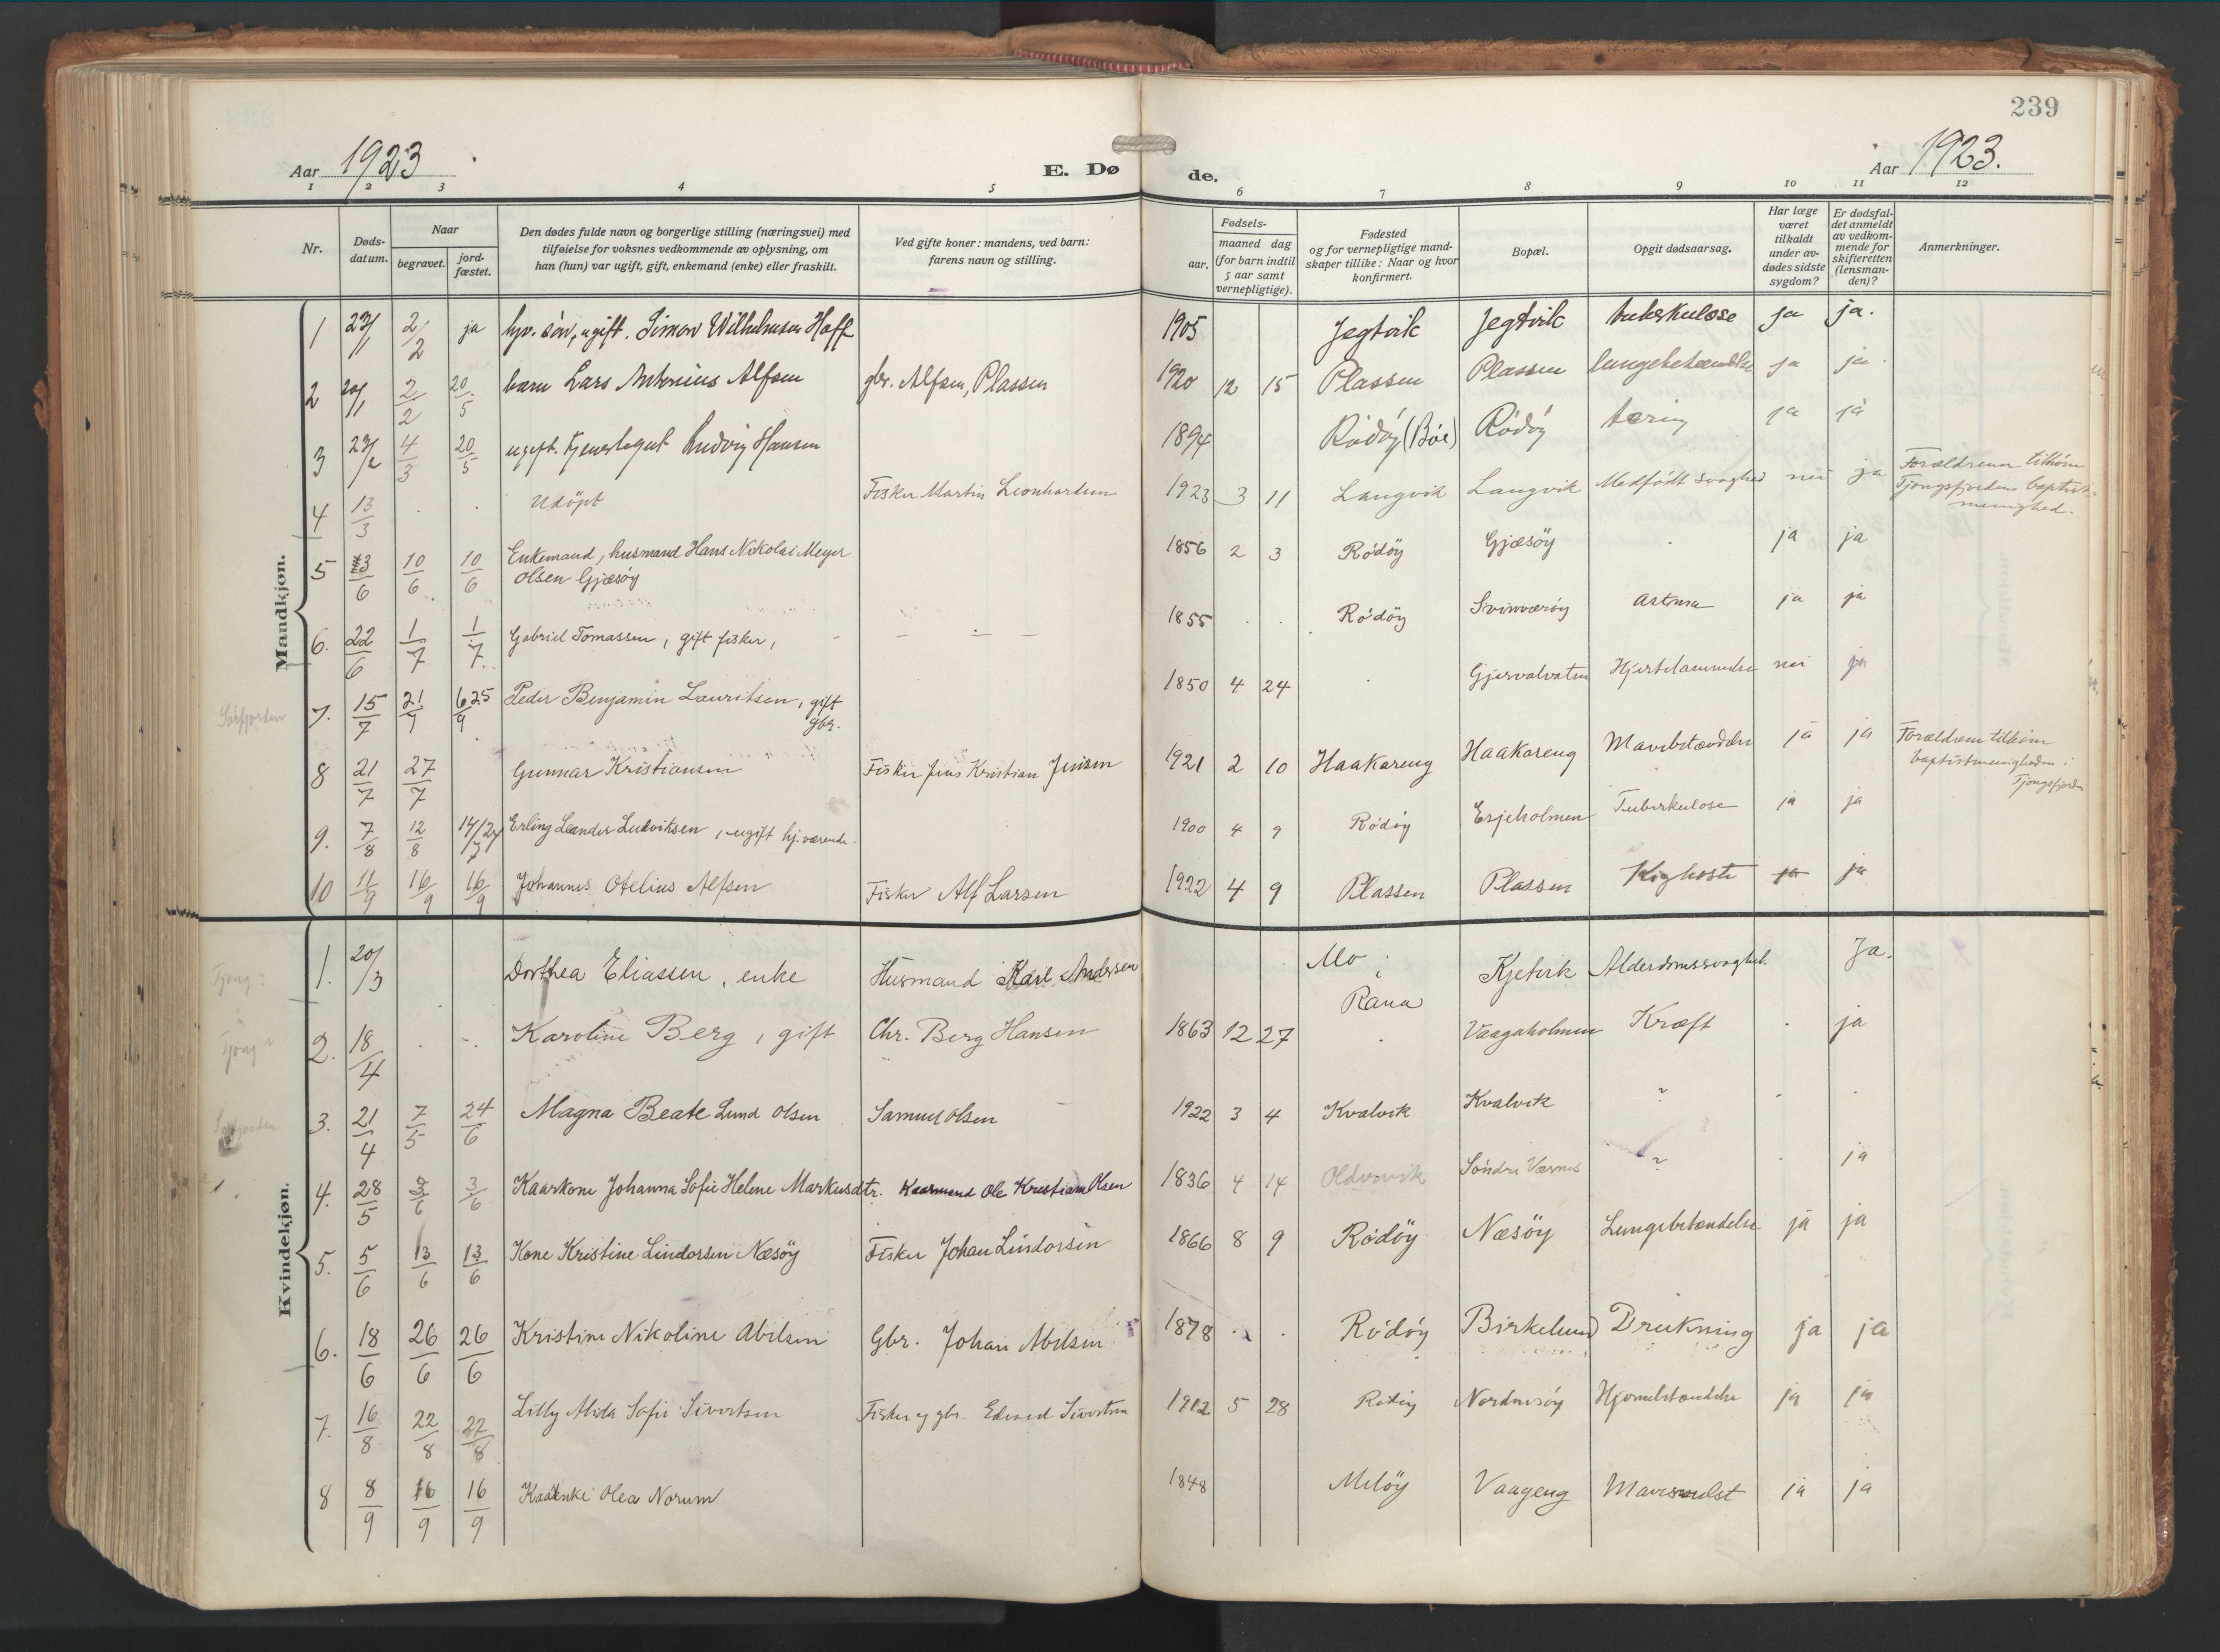 239
Aar 1923 E. Dø de. Aar 1923.
1 2 3 4 5 6 7 8 9 10 11 12
Nr. Døds-datum. Naar begravet. jord-fæstet. Den dødes fulde navn og borgerlige stilling (næringsvei) med tilføielse for voksnes vedkommende av oplysning, om han (hun) var ugift, gift, enkemand (enke) eller fraskilt. Ved gifte koner: mandens, ved barn: farens navn og stilling. Fødsels- aar. maaned dag (for barn indtil 5 aar samt vernepligtige). Fødested og for vernepligtige mand-skaper tillike: Naar og hvor konfirmert. Bopæl. Opgit dødsaarsag. Har læge været tilkaldt under av-dødes sidste sygdom? Er dødsfal-det anmeldt av vedkom-mende for skifteretten (lensman-den)? Anmerkninger.
Mandkjøn.
1 23/1 2/2 ja søn, ugift. Simon Wilhelmsen Hoff 1905 Jegtvik Jegtvik tuberkulose ja ja.
2 20/1 2/2 20/5 barn Lars Antonius Alfsen gbr. Alfsen, Plassen 1920 12 15 Plassen Plassen lungebetændelse ja ja
3 23/2 4/3 20/5 ugift. tjenestegut Ludvig Hansen 1894 Rödöy (Böe) Rödöy tæring ja ja
4 13/3 . . Udöpt Fisker Martin Leonhardsen 1923 3 11 Langvik Langvik Medfödt svaghed nei ja Forældrene tilhörer
Tjongsfjordens baptist-
menighed.
5 3/6 10/6 10/6 Enkemand, husmand Hans Nikolai Meyer
Olsen Gjæsöy 1856 2 3 Rödöy Gjæsöy . ja ja
6. 22/6 1/7 1/7. Gabriel Tomassen, gift fisker, 1855 . . Rödöy Svinværöy Astma ja ja
Sörfjorden 7. 15/7 21/7 6/9 25 Peder Benjamin Lauritsen, gift
gbr. 1850 4 24 . Gjervalvatn Hjertelammelse nei ja
8 21/7 27/7 Gunnar Kristiansen Fisker Jens Kristian Jensen 1921 2 10 Haakareng Haakareng Mavebetændelse ja ja Forældrene tilhörer
baptistmenigheden i
Tjongsfjorden
9. 7/8 12/8 14/7 24 Erling Leander Ludviksen, ugift hj.værende. 1900 4 9 Rödöy Esjeholmen Tuberkulose ja ja
10 11/9 16/9 16/9 Johannes Otelius Alfsen Fisker Alf Larsen 1922 4 9 Plassen Plassen Kighoste ja ja
Kvindekjøn.
Tjong 1. 20/3 Dorthea Eliassen, enke Husmand Karl Andersen Mo i
Rana Kjelvik Alderdomssvaghed. Ja.
Tjong 2. 18/4 . . Karoline Berg, gift Chr. Berg Hansen 1863 12 27 . Vaagaholmen Kræft . ja
Sörfjorden 3. 21/4 7/5 24/6 Magna Beate Lund Olsen Samuel Olsen 1922 3 4 Kvalvik Kvalvik ~ . .
4. 28/5 3/6 3/6 Kaarkone Johanna Sofie Helene Markusdtr. Kaarmand Ole Kristian Olsen 1836 4 14 Oldervik Söndre Værnes ~ . ja
5. 5/6 13/6 13/6 Kone Kristine Lindorsen Næsöy Fisker Johan Lindorsen 1866 8 9 Rödöy Næsöy Lungebetændelse ja ja
6. 18/6 26/6 26/6 Kristine Nikoline Abelsen Gbr. Johan Abelsen 1878 . . Rödöy Birkelund Drukning ja ja
7. 16/8 22/8 22/8 Lilly Alida Sofie Sivertsen Fisker og gbr. Edvard Sivertsen 1912 5 28 Rödöy Nordnesöy Hjernebetændelse ja ja
8 8/9 16/9 16/9 Kaarenke Olea Norum 1848 Melöy Vaageng Mavesvulst ja ja